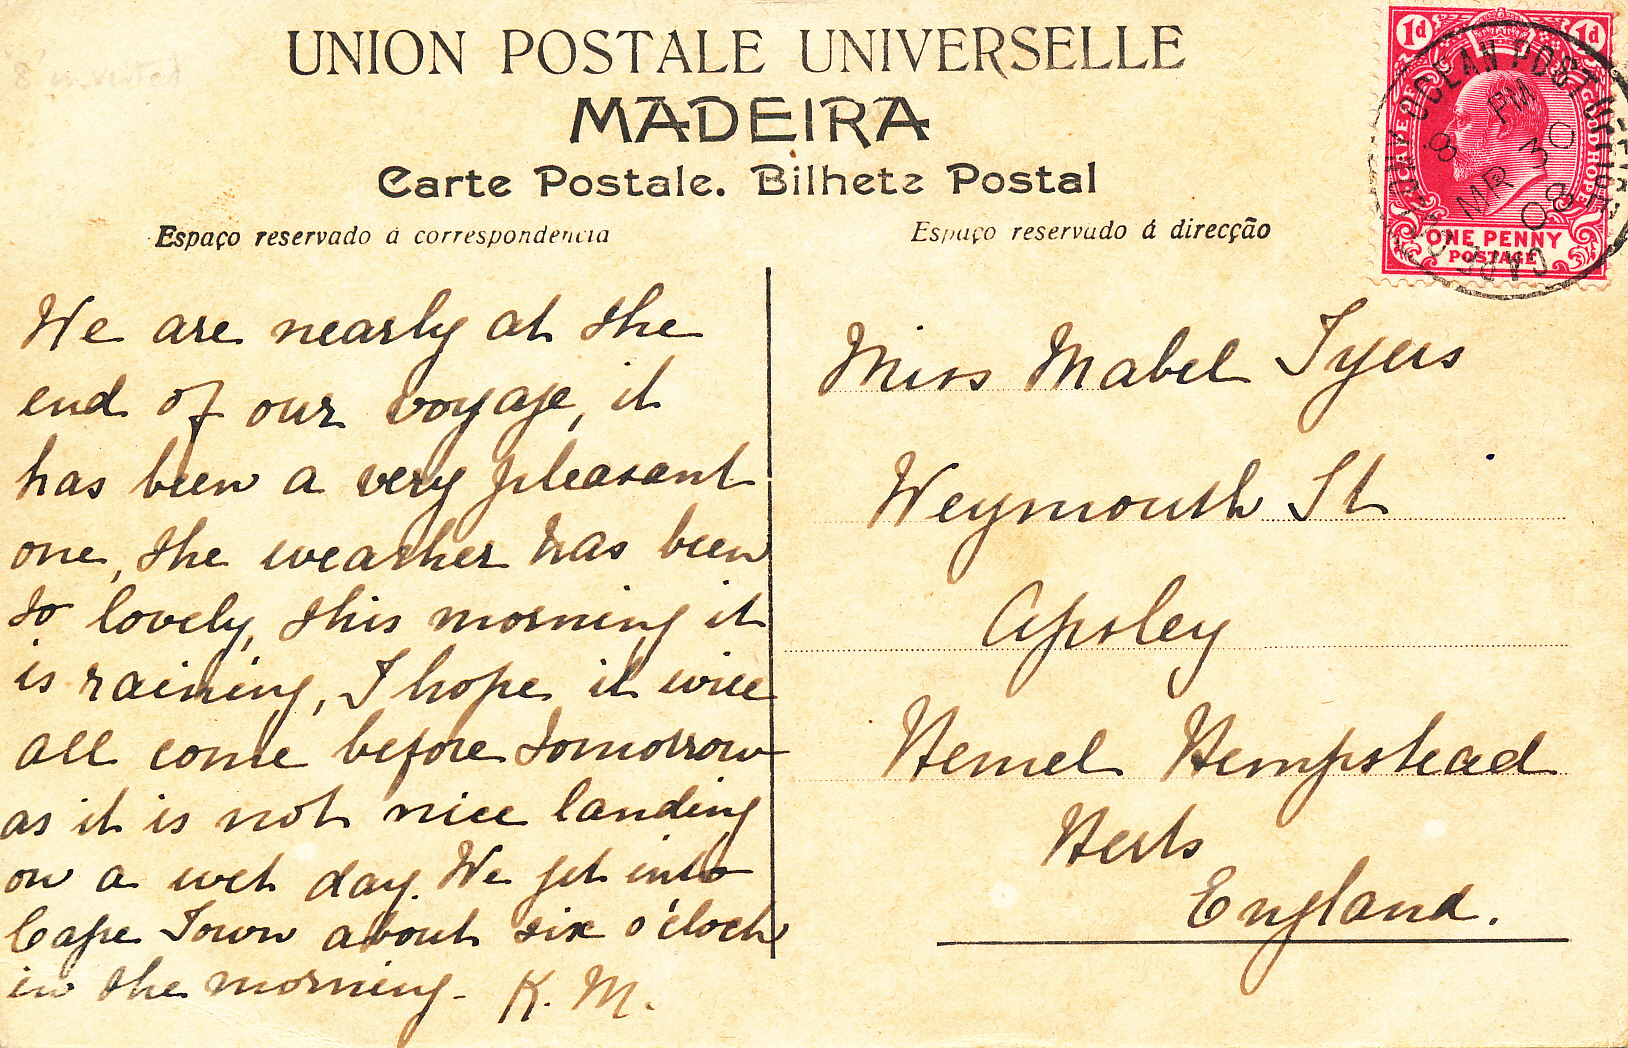 UNION POSTALE UNIVERSELLE
MADEIRA
Carte Postale. Bilhete Postal
Espaço reservado á correspondencia
Espaço reservado á direcção
1d 1d
CAPE OF GOOD HOPE
ONE PENNY
POSTAGE
OCEAN POST OFFICE
8 PM
MR 30
08
CAPE
We are nearly at the
end of our voyage, it
has been a very pleasant
one, the weather has been
so lovely, this morning it
is raining, I hope it will
all come before tomorrow
as it is not nice landing
on a wet day. We get into
Cape Town about six o'clock
in the morning - K. M.
Miss Mabel Tyers
Weymouth St
Apsley
Hemel Hempstead
Herts
England.